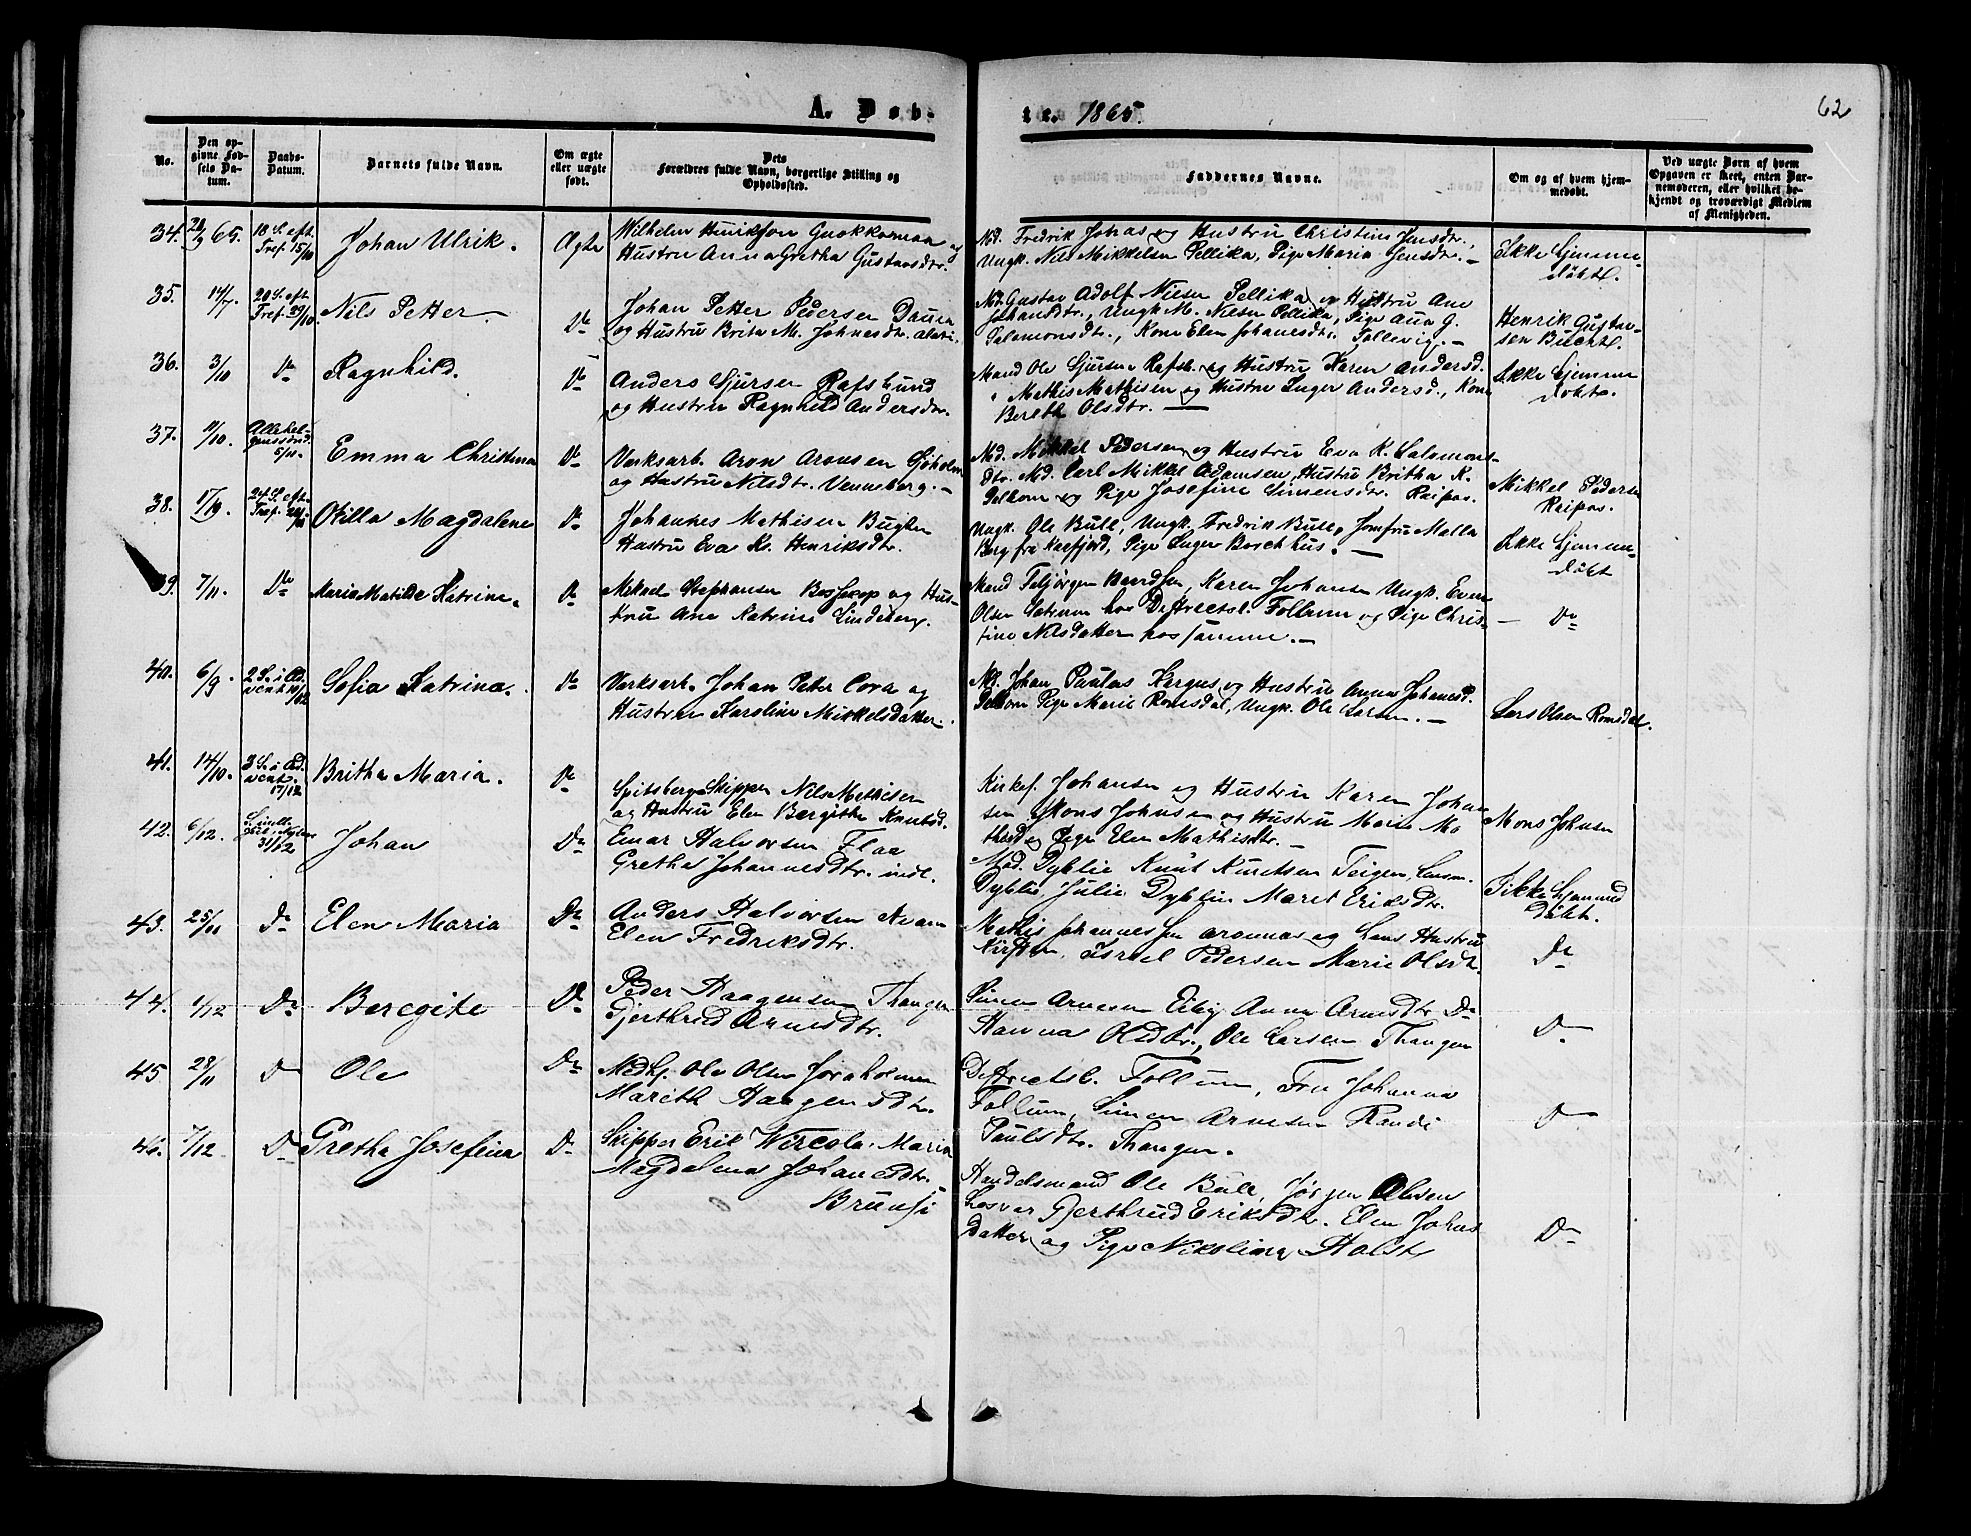 A. Døb-
te. 1865.
62
No.
Den op-
givne Fød-
sels Da-
tum.
Daabs-
Datum.
Barnets fulde Navn.
Om ægte
eller uægte
født.
Dets
Forældres fulde Navn, borgerlige Stilling og
Opholdssted.
Faddernes Navne.
Om og af hvem hjem-
medøbt.
Ved uægte Børn af hvem
Opgaven er skeet, enten Bar-
nemoderen, eller hvilket be-
kjendt og troværdigt Medlem
af Menigheden.
34. 28/9 65. 18 S. eft. Tref. 15/10 Johan Ulrik. Ægte
Wilhelm Henriksen og
Hustru Anna Gretha Gustavsdtr.
Md. Fredrik Johns og Hustru Christine Jensdtr.,
Ungk. Nils Mikkelsen Pellika, Pige Maria Jensdtr. —
Ikke hjemme-
døbt.
35. 14/7. 20 S. eft. Tref. 29/10. Nils Petter — Do
Johan Petter Pedersen
og Hustru Brita M. Johnesdtr.
Md. Gustav Adolf Nielsen Pellika og Hustru Ane
Johansdtr., Ungk. M. Nielsen Pellika, Pige Ana G.
Salomonsdtr., Kone Elen Johanesdtr. Tollevig. —
Henrik Gustav-
sen Bucht.
36. 3/10 Do Ragnhild. Do
Anders Sjursen Rafsbund
og Hustru Ragnhild Andersdtr.
Mand Ole Sjursen Rafsb. og Hustru Karen Andersd.
Mathis Mathisen og Hustru Inger Andersd., Kone
Bereth Olsdtr. —
Ikke hjemme
døbt.
37. 9/10. Allehel-
genssønd. 5/11. Emma Christina Do
Værksarb. Aron Aronsen Sjøholm
og Hustru Nilsdtr. Venneberg. —
Md. Mikkel Pedersen og Hustru Eva K. Salomons-
dtr. Md. Carl Mikkel Adamsen, Hustru Britha K.
Pelkom og Pige Josefine Simensdtr. Raipas.
Mikkel Pedersen
Raipas.
38. 17/9. 24 S. eft. Tref. Otilla Magdalene Do
Johannes Mathisen Bugten
Hustru Eva K. Henriksdtr.
Ungk. Ole Bull, Ungk. Fredrik Bull, Jomfru Malla
Berg fra Kaafjord, Pige Inger Bosekhus. —
Ikke hjemme-
døbt
39. 7/11. Do Maria Matilde Katrine. Do
Mikael Stephansen Bossekop og Hus-
tru Ane Katrine Lindeberg.
Mand Feljørgen Berndsen, Karen Johansen Ungk. Even
Olsen Sætrum hos Distrectsl. Follum og Pige Chris-
tine Nilsdatter hos samme. —
Do
40. 6/9. 2 S. i Ad-
vent 10/12 Sofia Katrina. Do
Værksarb. Johan Petter Cora og
Hustru Karoline Mikkelsdatter.
Md. Johan Paulus Kergus og Hustru Anna Johanesd.
Pelkom Pige Marie Romsdal, Ungk. Ole Larsen. —
Lars Olsen Romsdal.
41. 14/10. 3 S. i Ad-
vent. 17/12 Britha Maria. Do
Spitsbergs Skipper Nils Mathisen
og Hustru Elen Bergithe Knudsd.
Kirkes. Johansen og Hustru Karen Johan
sen Mons Johnsen og Hustru Marie Mo
og Pige Elen Mathisdtr. —
Mons Johnsen
42. 6/12. 31/12 Johan Do
Einar Halvorsen Flaa
Gretha Johannesdtr. indl.
Mad. Dyblie Knut Knutsen Teigen,
Dyblie, Julie Dyblie Maret Eriksdtr.
Ikke hjemme
døbt.
43. 25/11 Do Elen Maria Do
Anders Halvorsen
Elen Fredriksdtr.
Mathis Johannessen og hans Hustru
Kirsten, Israel Pedersen Marie Olsdtr.
Do
44. 1/12 Do Beregite Do
Peder Haagensen Thangen
Gjerthrud Arnesdtr.
Simen Arnesen Eiby Anne Arnesdtr Do
Hanna Olsdtr., Ole Larsen Thangen
Do
45 28/11 Do Ole Do
Ole Olsen Joraholmen
Mareth Haagensdtr.
Distrectsl. Follum, Fru Johanna
Follum, Simen Arnesen Randi
Paulsdtr. Thangen.
Do
46. 7/12 Do Gretha Josefina Do
Skipper Erik Wircola. Maria
Magdalena Johanesdtr.
Handelsmand Ole Bull, Jørgen Olsen
Gjerthrud Eriksdtr. Elen Johns
datter og Pige Nikoline Holst
Do